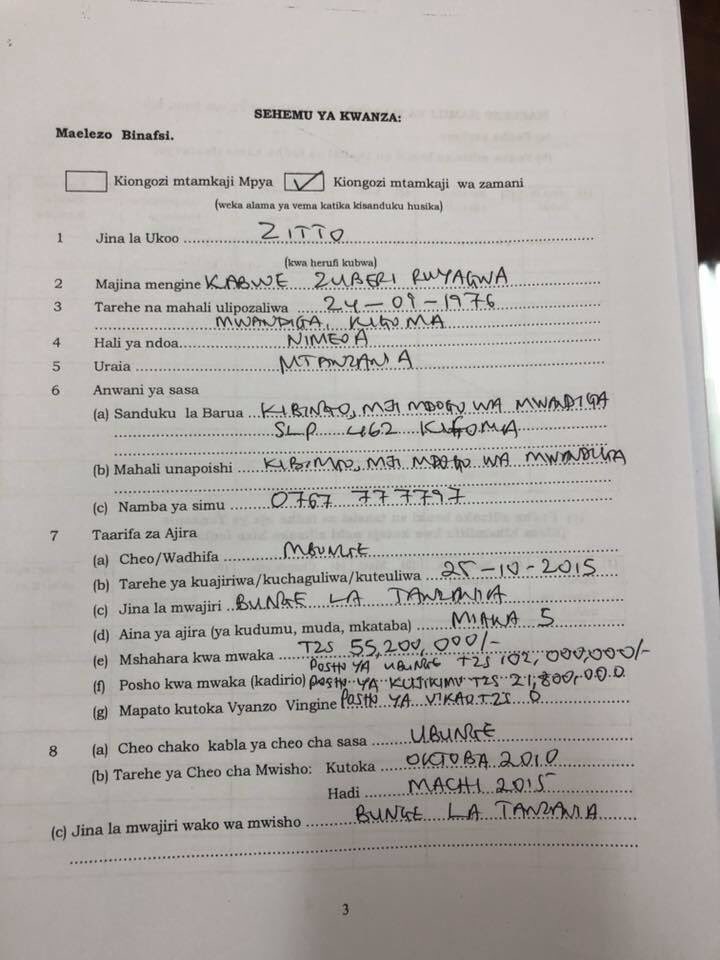 SEHEMU YA KWANZA:
Maelezo Binafsi.
Kiongozi mtamkaji Mpya ✓ Kiongozi mtamkaji wa zamani
(weka alama ya vema katika kisanduku husika)
1 Jina la Ukoo ZITTO
(kwa herufi kubwa)
2 Majina mengine KABWE ZUBERI RUYAGWA
3 Tarehe na mahali ulipozaliwa 24-09-1976
MWANDIGA, KIGOMA
4 Hali ya ndoa NIMEOA
5 Uraia MTANZANIA
6 Anwani ya sasa
(a) Sanduku la Barua KIBINGO, MJI MDOGO WA MWANDIGA
SLP 462 KIGOMA
(b) Mahali unapoishi KIBINGO, MJI MDOGO WA MWANDIGA
(c) Namba ya simu 0767 777797
7 Taarifa za Ajira
(a) Cheo/Wadhifa MBUNGE
(b) Tarehe ya kuajiriwa/kuchaguliwa/kuteuliwa 25-10-2015
(c) Jina la mwajiri BUNGE LA TANZANIA
(d) Aina ya ajira (ya kudumu, muda, mkataba) MIAKA 5
(e) Mshahara kwa mwaka TZS 55,200,000/-
POSHO YA UBUNGE TZS 102,000,000/-
(f) Posho kwa mwaka (kadirio) POSHO YA KUJIKIMU TZS 21,800,000
(g) Mapato kutoka Vyanzo Vingine POSHO YA VIKAO TZS 0
8 (a) Cheo chako kabla ya cheo cha sasa UBUNGE
(b) Tarehe ya Cheo cha Mwisho: Kutoka OKTOBA 2010
Hadi MACHI 2015
(c) Jina la mwajiri wako wa mwisho BUNGE LA TANZANIA
3